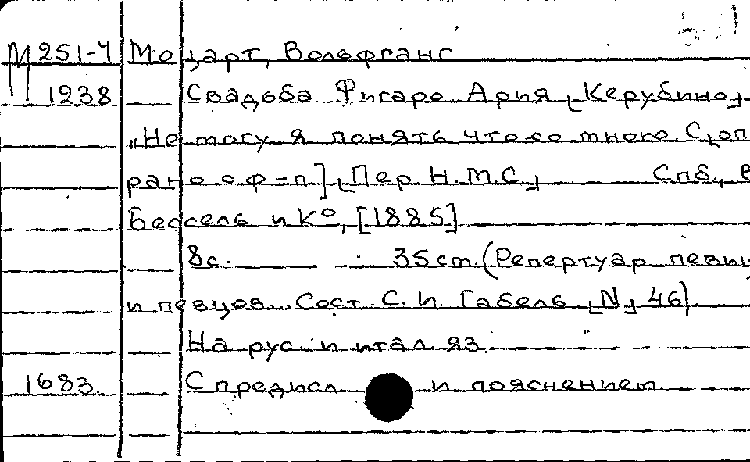 М 251-4 Моцарт, Вольфганг
1238 Свадьба Фигаро Ария [Керубино]
„Не могу я понять что со мною С, соп
рано с ф=п] [Пер. Н.М.С.] Спб., В
Бессель и К°, [1885]
8с. 35 cm. (Репертуар певиц
и певцов. Сост. С. И. Габель [N] 46)
На рус и итал яз.
1683. С предисл и пояснением